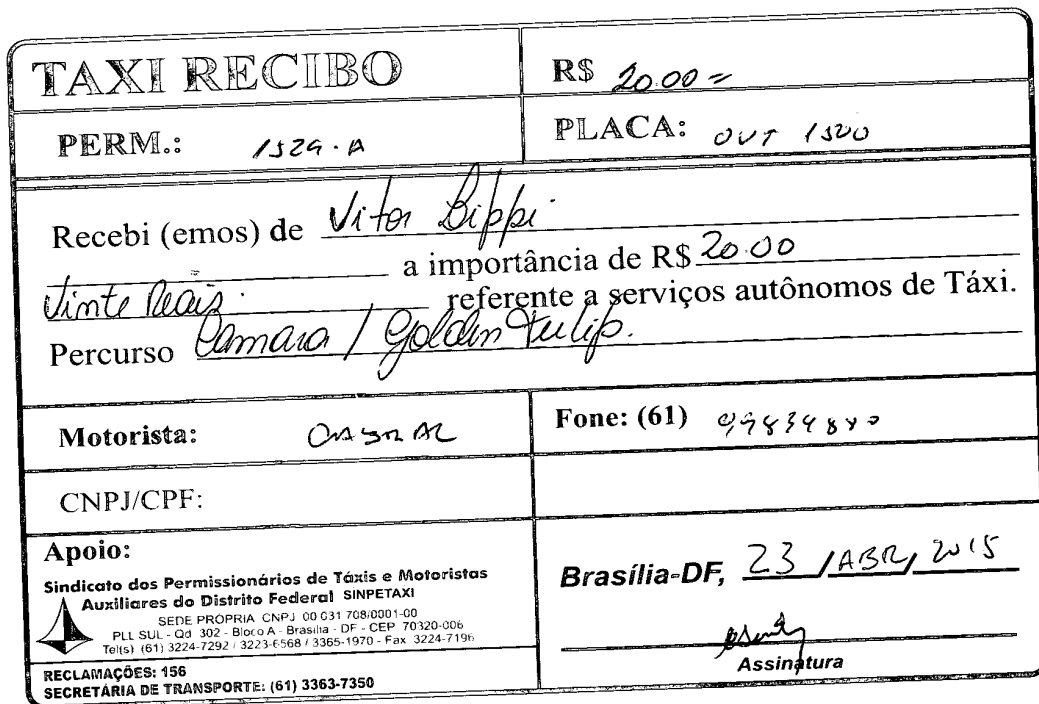 TAXI RECIBO
R$ 20.00 =
PERM.: 1529.A
PLACA: OVT 1500
Recebi (emos) de Vitor Lippi.
a importância de R$ 20.00
Vinte Reais. referente a serviços autônomos de Táxi.
Percurso Camara / Golden Tulip.
Motorista: CABRAL
Fone: (61)
CNPJ/CPF:
Apoio:
Sindicato dos Permissionários de Táxis e Motoristas
Auxiliares do Distrito Federal SINPETAXI
SEDE PROPRIA CNPJ 00 031 708/0001-00
PLL SUL - Qd 302 - Bloco A - Brasília - DF - CEP 70320-006
Tel(s) (61) 3224-7292 / 3223-6568 / 3365-1970 - Fax 3224-7196
RECLAMAÇÕES: 156
SECRETÁRIA DE TRANSPORTE: (61) 3363-7350
Brasília-DF, 23 / ABR / 2015
Assinatura